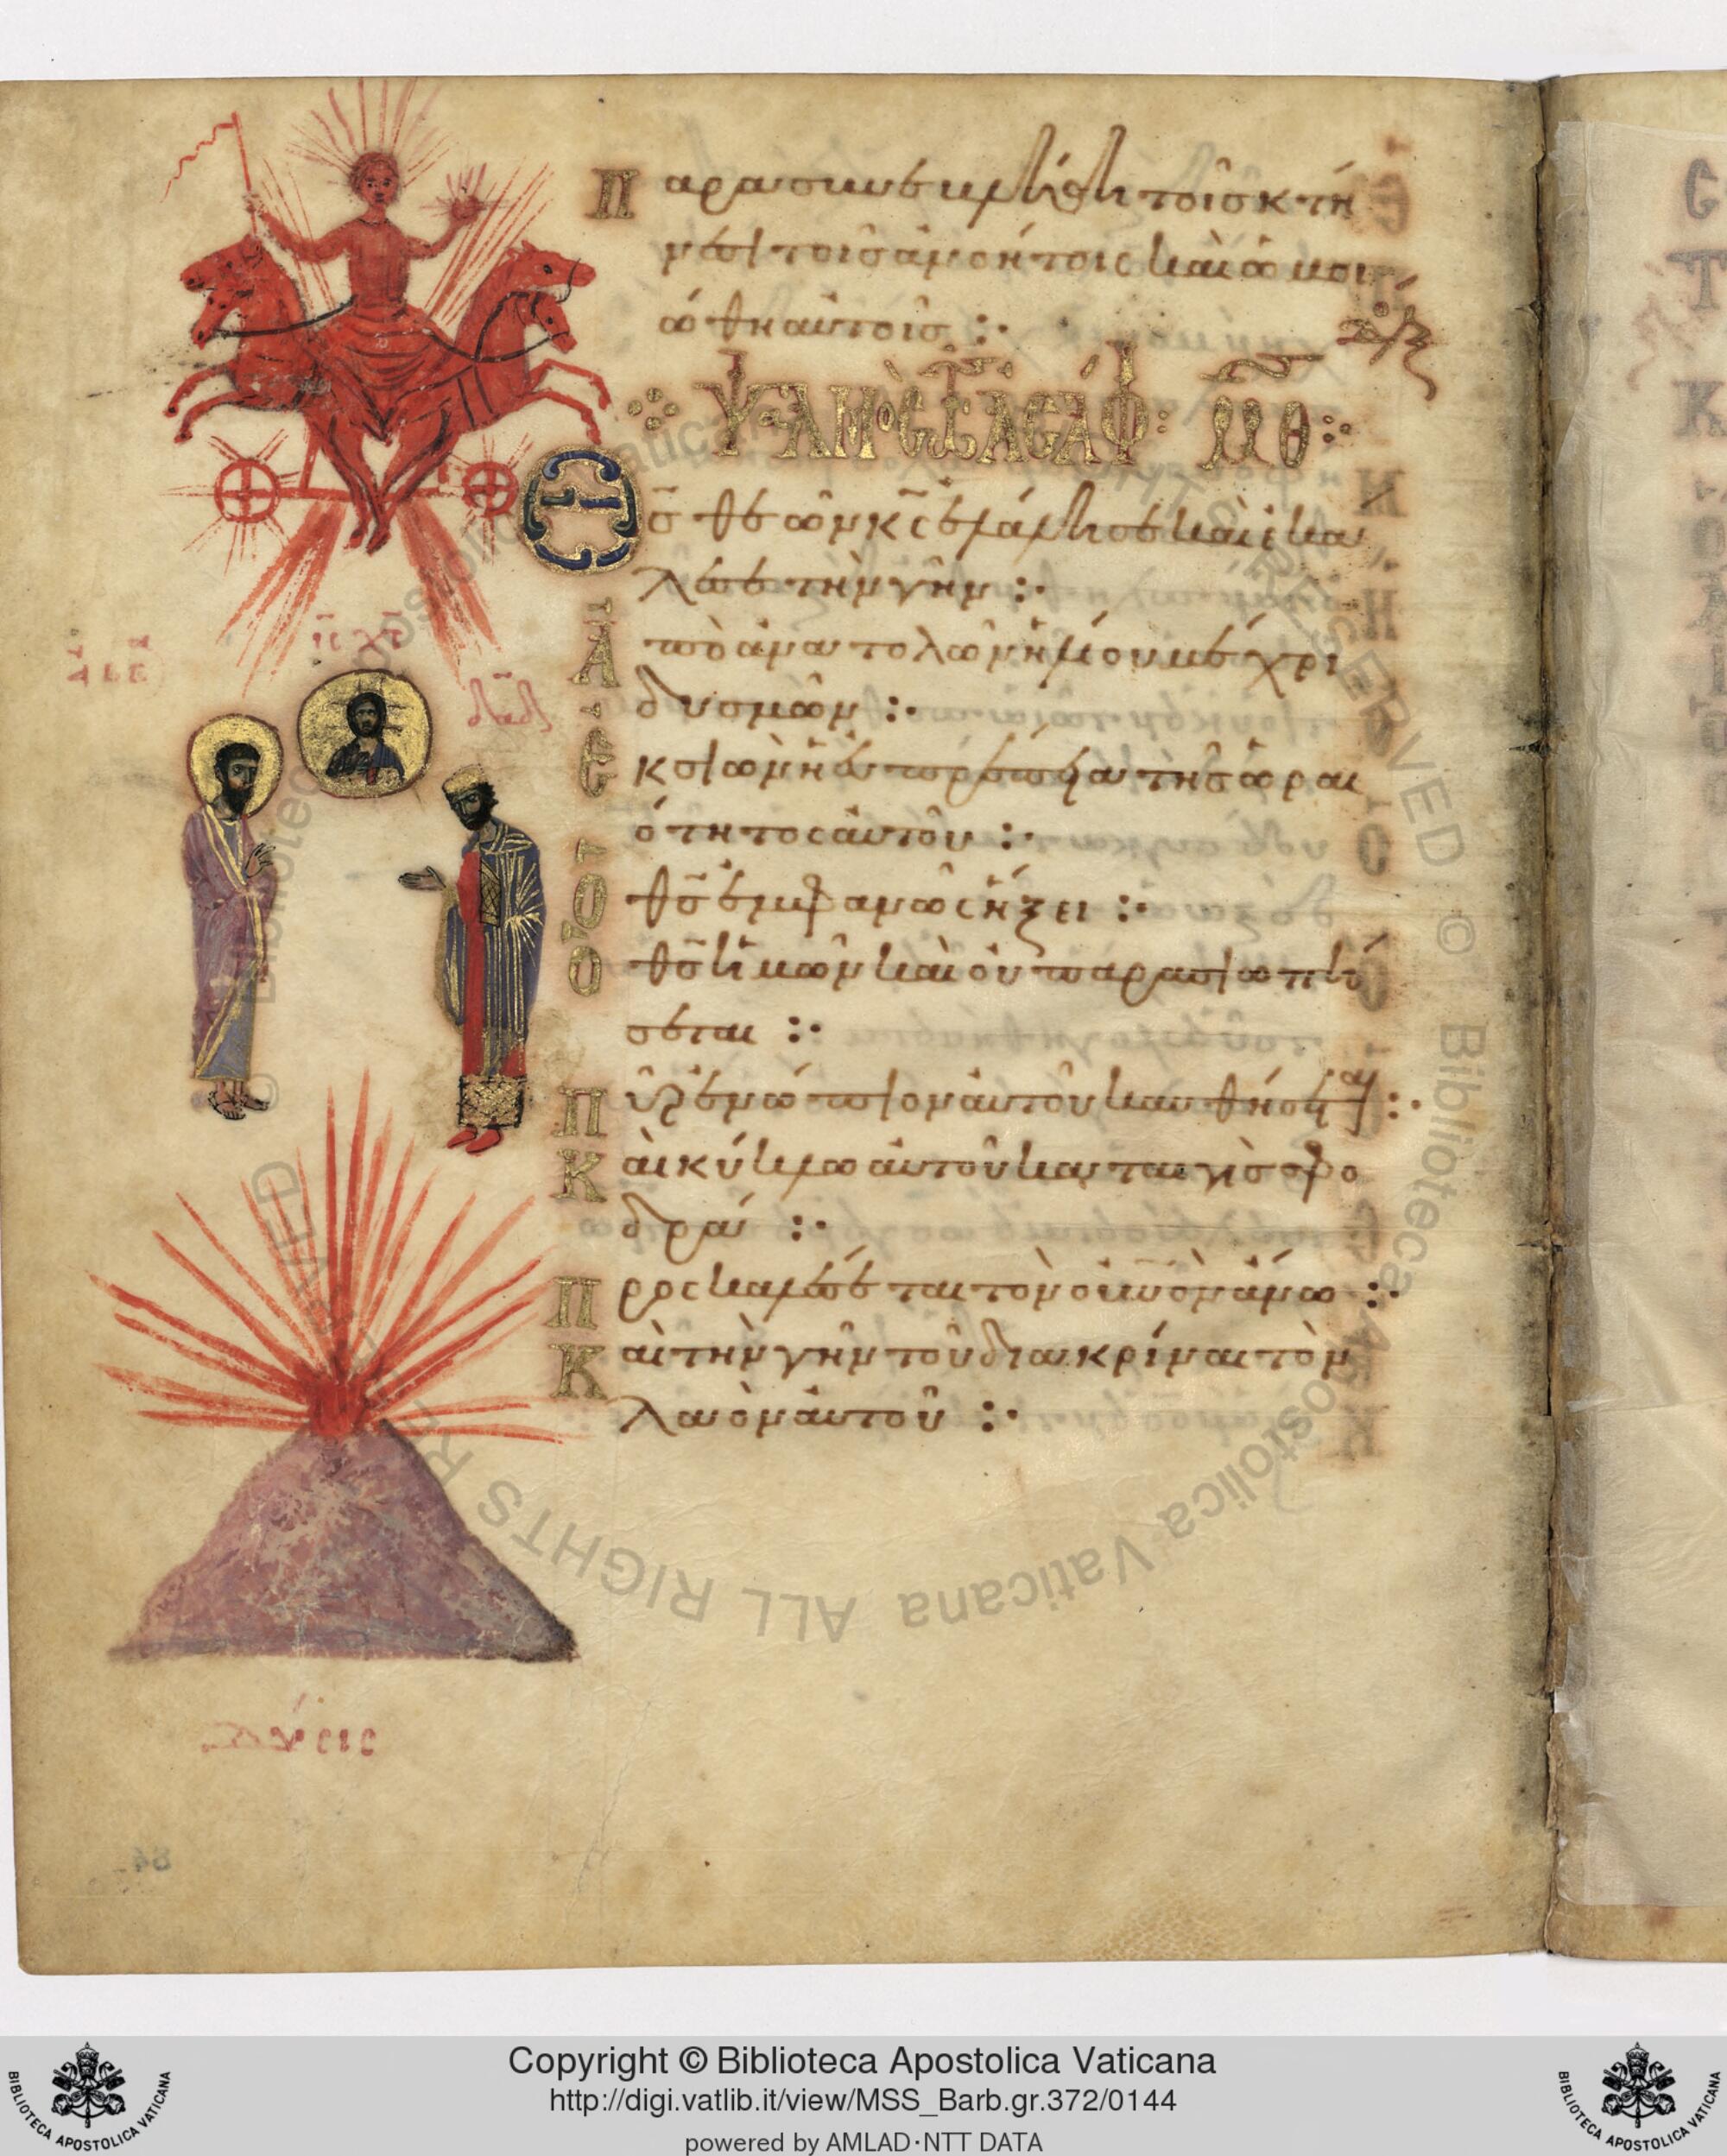 Παρασυνεβλήθη τοῖς κτή
νεσι τοῖς ἀνοήτοις καὶ ὡμοι
ώθη αὐτοῖς :·
ΨΑΛΜΟΣ ΤΩ ΑΣΑΦ: ΜΘ:
Θς̄ θεῶν κς̄ ἐλάλησε καὶ ἐκά
λεσε τὴν γῆν :·
Ἀπὸ ἀνατολῶν ἡλίου μέχρι
δυσμῶν :·
Ἐκ σιὼν ἡ εὐπρέπεια τῆς ὡραι
ότητος αὐτοῦ :·
Ὁ θς̄ ἐμφανῶς ἥξει :·
Ὁ θς̄ ἡμῶν καὶ οὐ παρασιωπή
σεται :·
Πῦρ ἐνώπιον αὐτοῦ καυθήσεται :·
Καὶ κύκλω αὐτοῦ καταιγὶς σφο
δρά :·
Προσκαλέσεται τὸν οὐνὸν ἄνω :·
Καὶ τὴν γῆν τοῦ διακρῖναι τὸν
λαὸν αὐτοῦ :·
ῑς̄ χ̄ς̄
δᾱδ
84
Copyright © Biblioteca Apostolica Vaticana
http://digi.vatlib.it/view/MSS_Barb.gr.372/0144
powered by AMLAD·NTT DATA
BIBLIOTECA APOSTOLICA VATICANA
BIBLIOTECA APOSTOLICA VATICANA
© Biblioteca Apostolica Vaticana ALL RIGHTS RESERVED